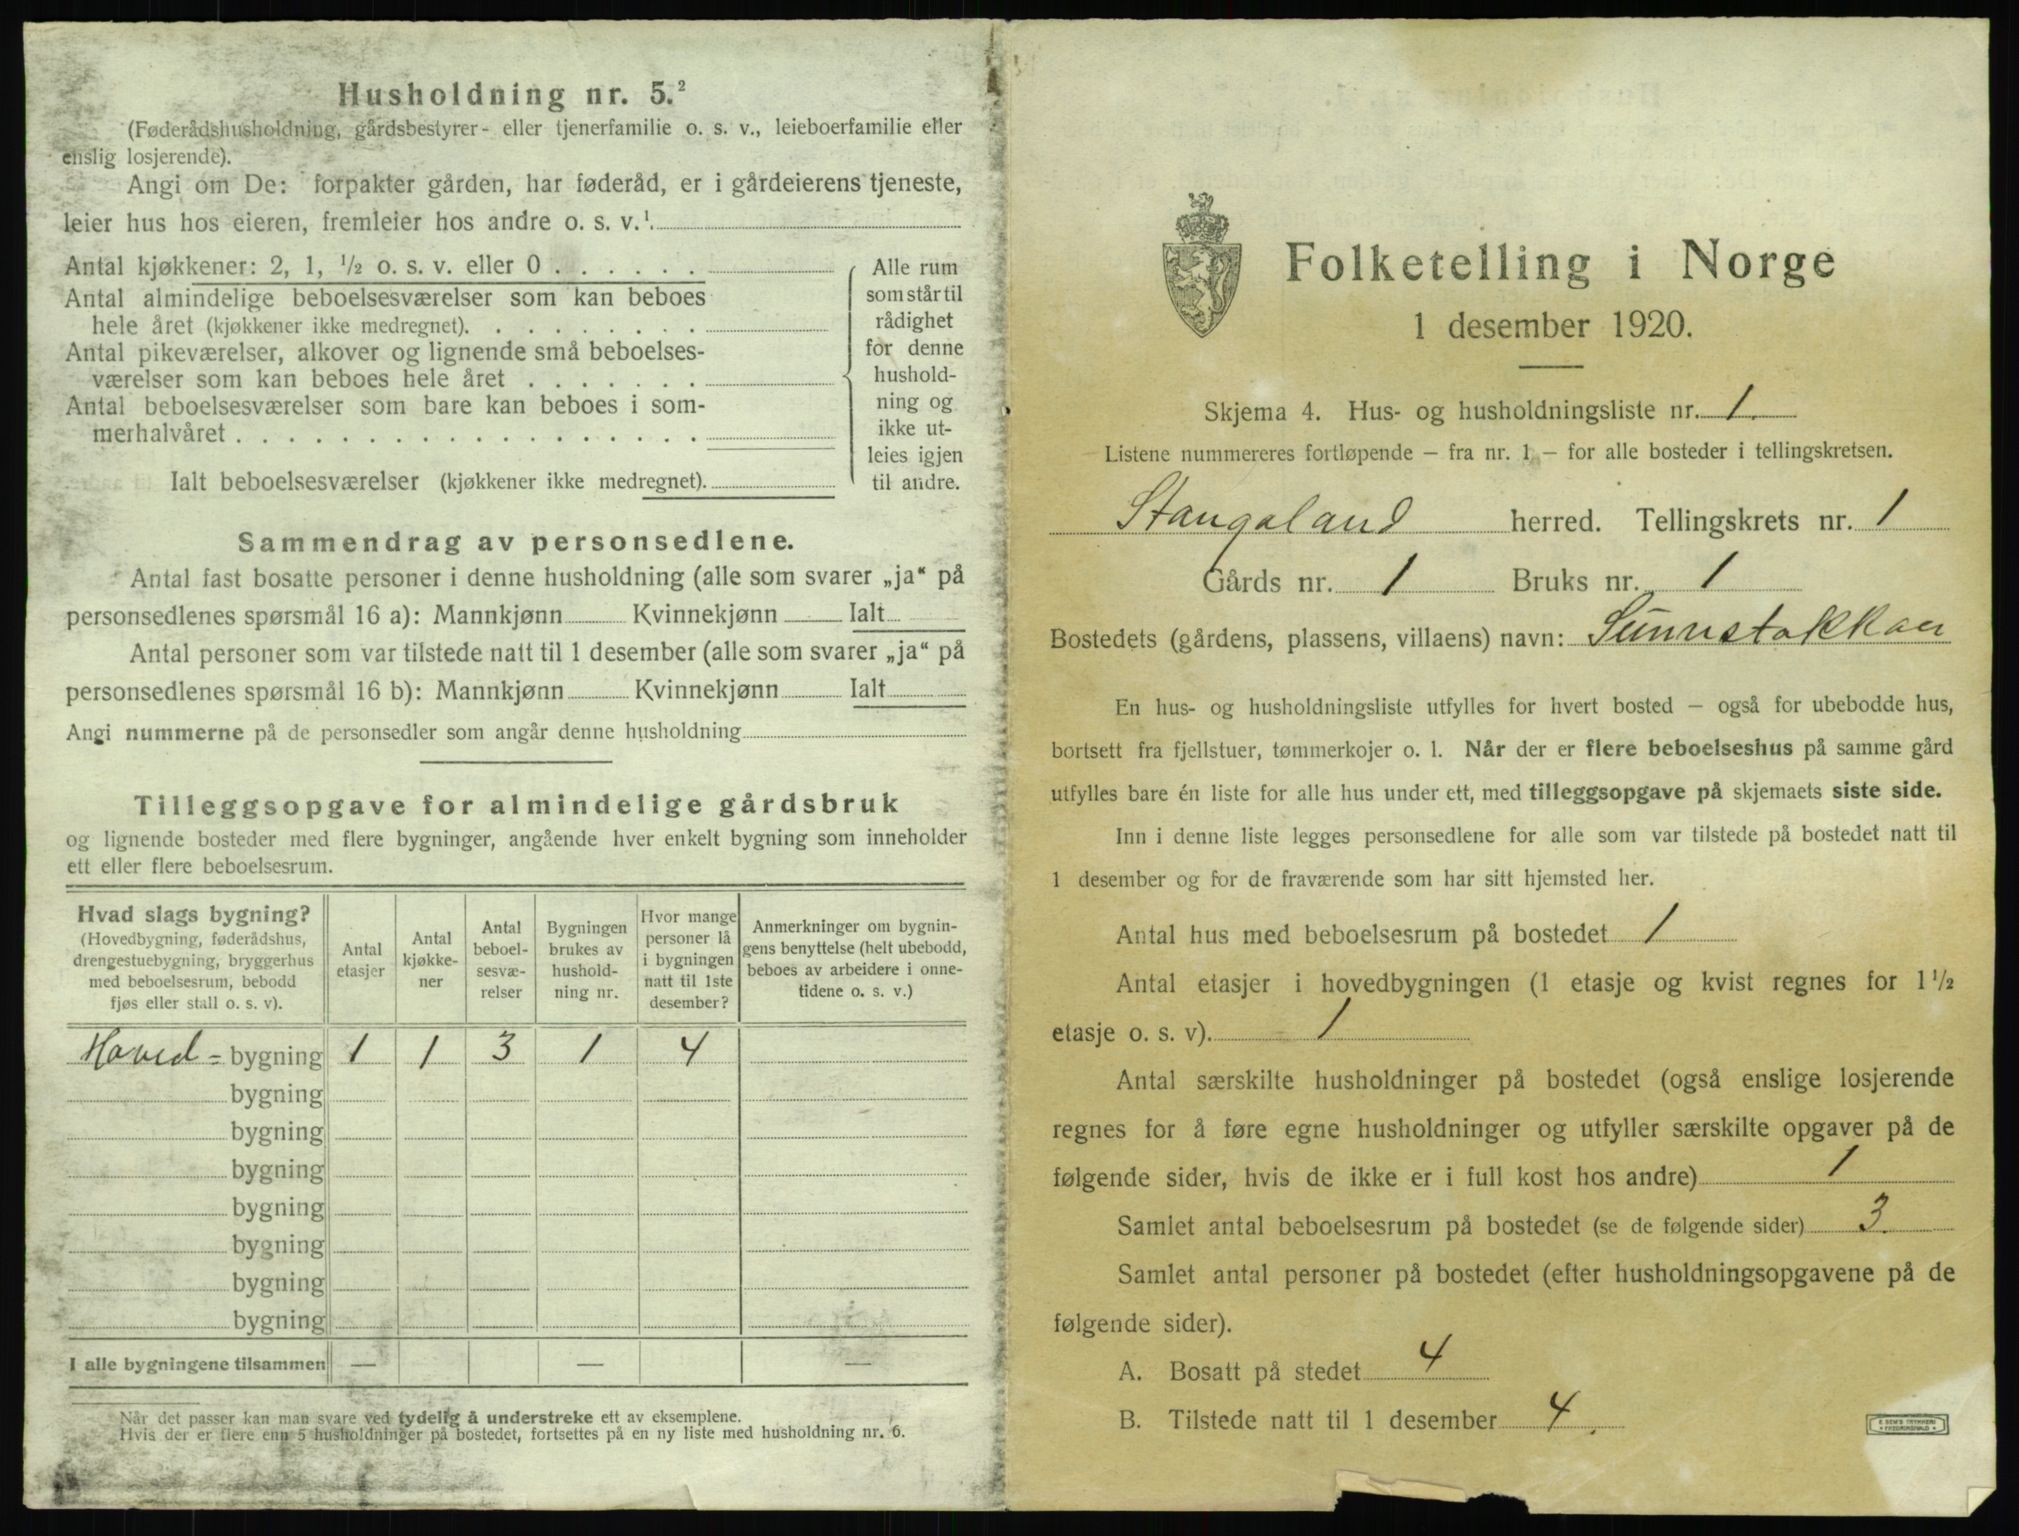 Husholdning nr. 5.²
(Føderådshusholdning, gårdsbestyrer- eller tjenerfamilie o. s. v., leieboerfamilie eller
enslig losjerende).
Angi om De: forpakter gården, har føderåd, er i gårdeierens tjeneste,
leier hus hos eieren, fremleier hos andre o. s. v.¹
Antal kjøkkener: 2, 1, ½ o. s. v. eller 0 . . . . . .
Antal almindelige beboelsesværelser som kan beboes
hele året (kjøkkener ikke medregnet). . . . . . . . .
Antal pikeværelser, alkover og lignende små beboelses-
værelser som kan beboes hele året . . . . . . .
Antal beboelsesværelser som bare kan beboes i som-
merhalvåret . . . . . . . . . . . . . . . . . .
Ialt beboelsesværelser (kjøkkener ikke medregnet).
Alle rum
som står til
rådighet
for denne
hushold-
ning og
ikke ut-
leies igjen
til andre.
Sammendrag av personsedlene.
Antal fast bosatte personer i denne husholdning (alle som svarer „ja“ på
personsedlenes spørsmål 16 a): Mannkjønn Kvinnekjønn Ialt
Antal personer som var tilstede natt til 1 desember (alle som svarer „ja“ på
personsedlenes spørsmål 16 b): Mannkjønn Kvinnekjønn Ialt
Angi nummerne på de personsedler som angår denne husholdning
Tilleggsopgave for almindelige gårdsbruk
og lignende bosteder med flere bygninger, angående hver enkelt bygning som inneholder
ett eller flere beboelsesrum.
Hvad slags bygning?
(Hovedbygning, føderådshus,
drengestuebygning, bryggerhus
med beboelsesrum, bebodd
fjøs eller stall o. s. v).
Antal
etasjer
Antal
kjøkke-
ner
Antal
beboel-
sesvæ-
relser
Bygningen
brukes av
hushold-
ning nr.
Hvor mange
personer lå
i bygningen
natt til 1ste
desember?
Anmerkninger om bygnin-
gens benyttelse (helt ubebodd,
beboes av arbeidere i onne-
tidene o. s. v.)
Hoved= bygning 1 1 3 1 4
bygning
bygning
bygning
bygning
bygning
bygning
bygning
I alle bygningene tilsammen — — —
Når det passer kan man svare ved tydelig å understreke ett av eksemplene.
Hvis der er flere enn 5 husholdninger på bostedet, fortsettes på en ny liste med husholdning nr. 6.
Folketelling i Norge
1 desember 1920.
Skjema 4. Hus- og husholdningsliste nr. 1.
Listene nummereres fortløpende – fra nr. 1 – for alle bosteder i tellingskretsen.
Stangaland herred. Tellingskrets nr. 1
Gårds nr. 1 Bruks nr. 1
Bostedets (gårdens, plassens, villaens) navn: Sunnstokkan
En hus- og husholdningsliste utfylles for hvert bosted – også for ubebodde hus,
bortsett fra fjellstuer, tømmerkojer o. l. Når der er flere beboelseshus på samme gård
utfylles bare én liste for alle hus under ett, med tilleggsopgave på skjemaets siste side.
Inn i denne liste legges personsedlene for alle som var tilstede på bostedet natt til
1 desember og for de fraværende som har sitt hjemsted her.
Antal hus med beboelsesrum på bostedet 1
Antal etasjer i hovedbygningen (1 etasje og kvist regnes for 1½
etasje o. s. v). 1
Antal særskilte husholdninger på bostedet (også enslige losjerende
regnes for å føre egne husholdninger og utfyller særskilte opgaver på de
følgende sider, hvis de ikke er i full kost hos andre) 1
Samlet antal beboelsesrum på bostedet (se de følgende sider) 3.
Samlet antal personer på bostedet (efter husholdningsopgavene på de
følgende sider).
A. Bosatt på stedet 4
B. Tilstede natt til 1 desember 4.
E. SEM'S TRYKKERI
FREDRIKSHALD